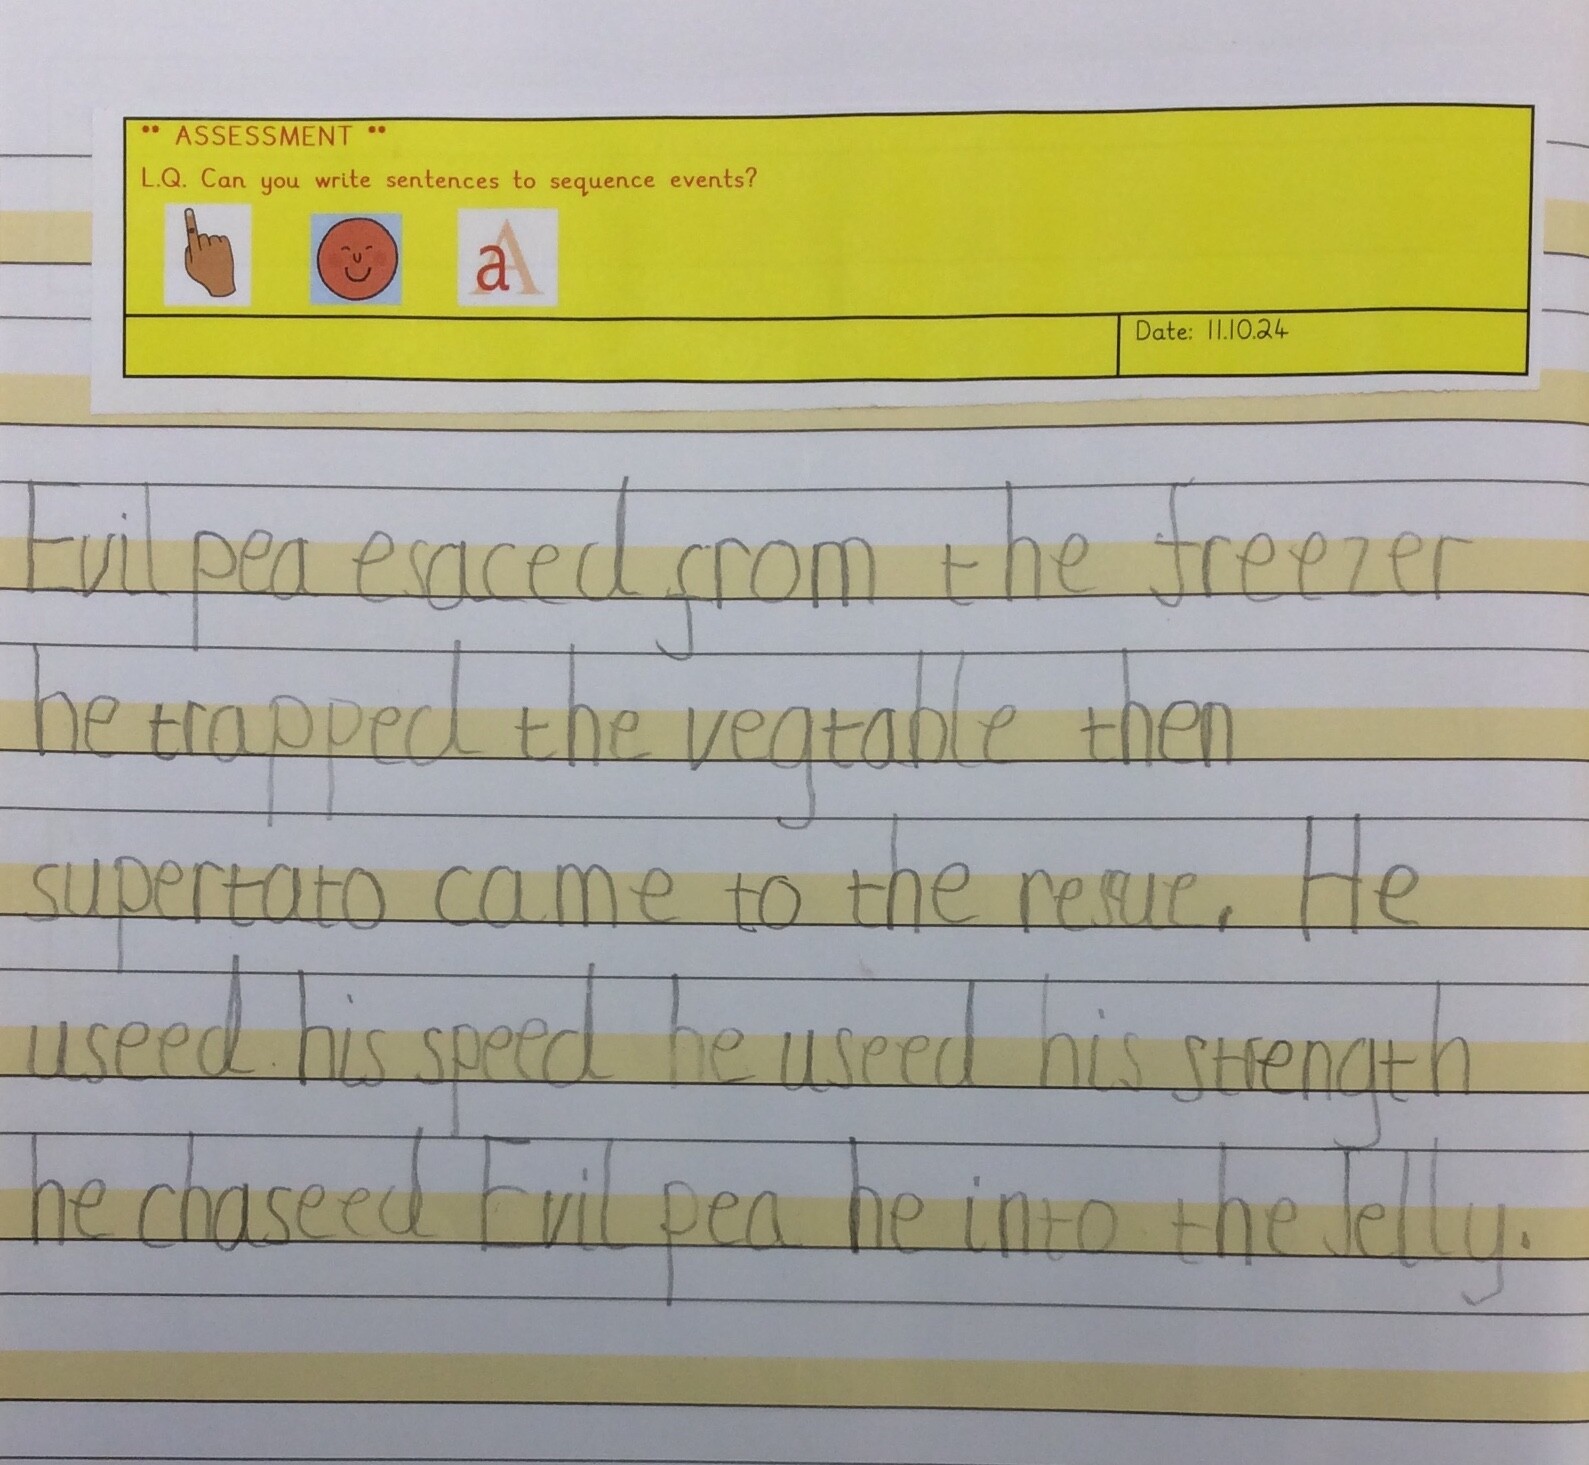 •• ASSESSMENT ••
L.Q. Can you write sentences to sequence events?
aA
Date: 11.10.24
Evil pea esaced from the freezer
he trapped the vegtable then
supertato came to the resue. He
useed his speed he useed his strength
he chaseed Evil pea he into the Jelly.